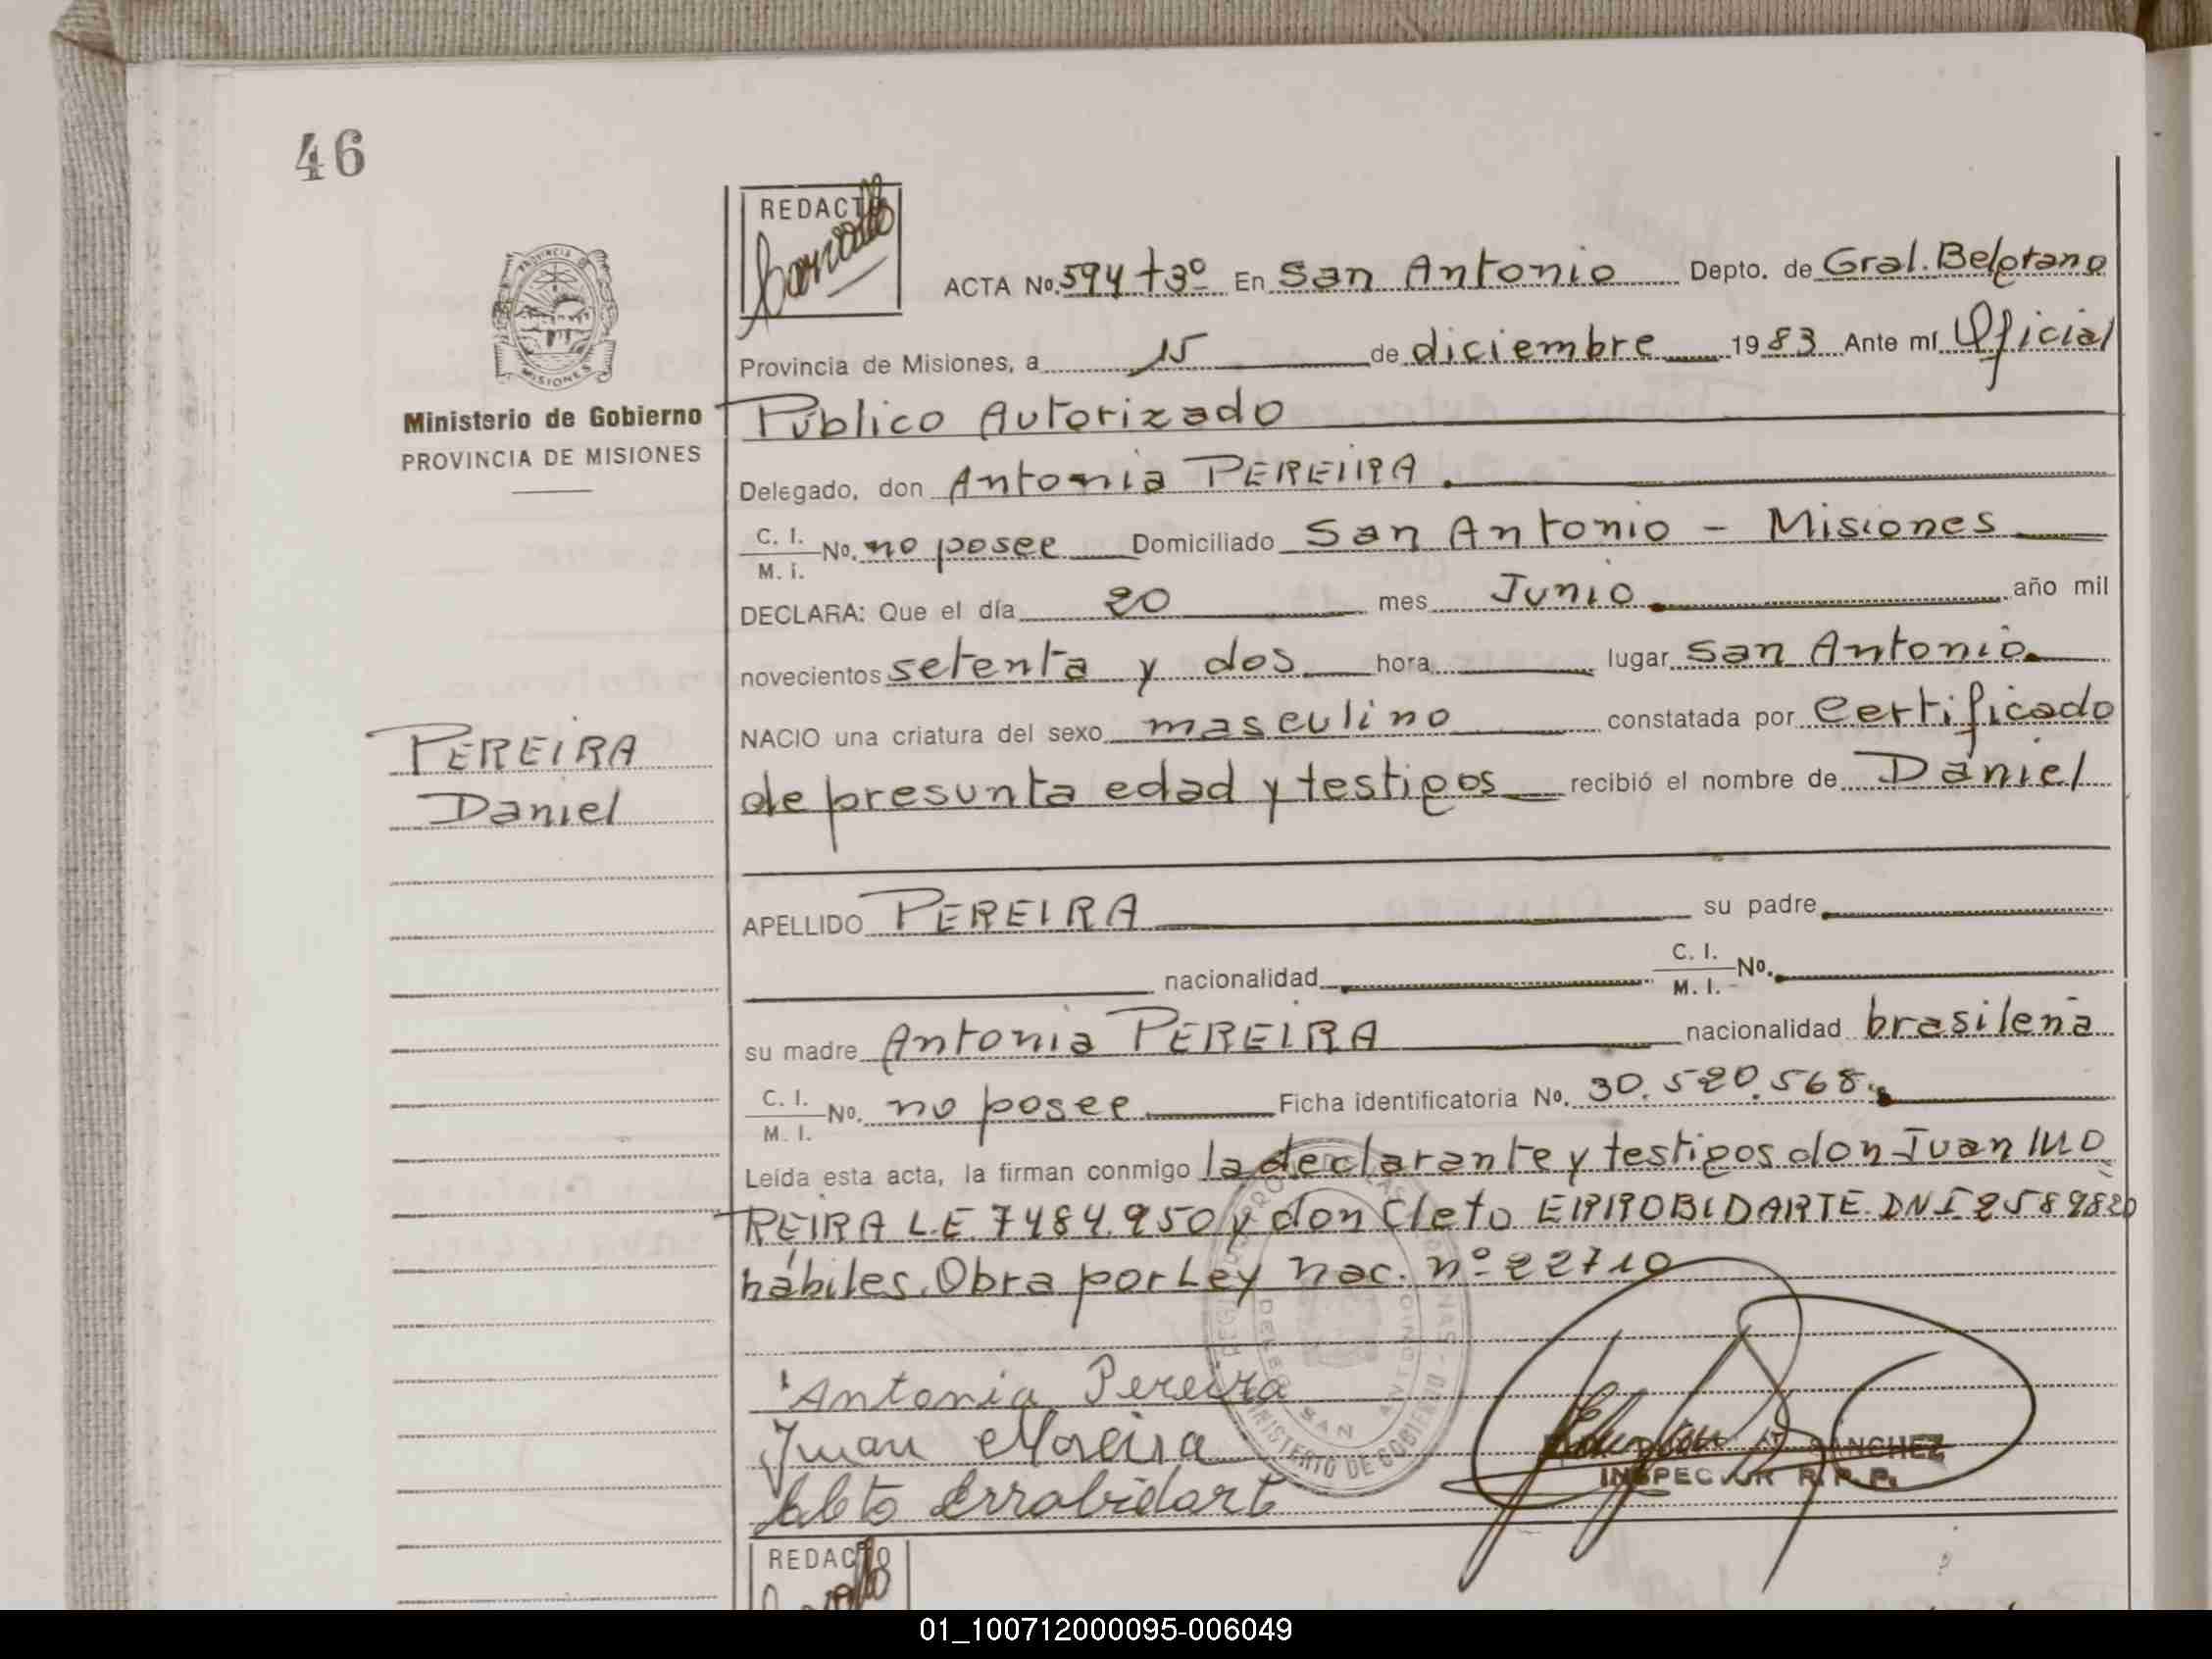 46
REDACTO
ACTA No. 594 t 3º En San Antonio Depto. de Gral. Belgrano
PROVINCIA DE MISIONES
Provincia de Misiones, a 15 de diciembre 1983 Ante mí Oficial
Ministerio de Gobierno
PROVINCIA DE MISIONES
Público Autorizado
Delegado, don Antonia PEREIRA.
C. I. M. I. No. no posee Domiciliado San Antonio - Misiones
DECLARA: Que el día 20 mes Junio. año mil
novecientos setenta y dos hora lugar San Antonio.
NACIO una criatura del sexo masculino constatada por Certificado
de presunta edad y testigos recibió el nombre de Daniel
PEREIRA
Daniel
APELLIDO PEREIRA su padre
nacionalidad C. I. M. I. No.
su madre Antonia PEREIRA nacionalidad brasileña
C. I. M. I. No. no posee Ficha identificatoria No. 30.520.568.
Leída esta acta, la firman conmigo la declarante y testigos don Juan MO
REIRA L.E. 7484.950 y don Cleto ERROBIDARTE. DNI 2589820
hábiles. Obra por Ley nac. nº 22710
Antonia Pereira
Juan Moreira
Cleto Errobidarte
SANCHEZ
INSPECTOR R. P. P.
SAN ANTONIO
MINISTERIO DE GOBIERNO
REDACTO
01_100712000095-006049